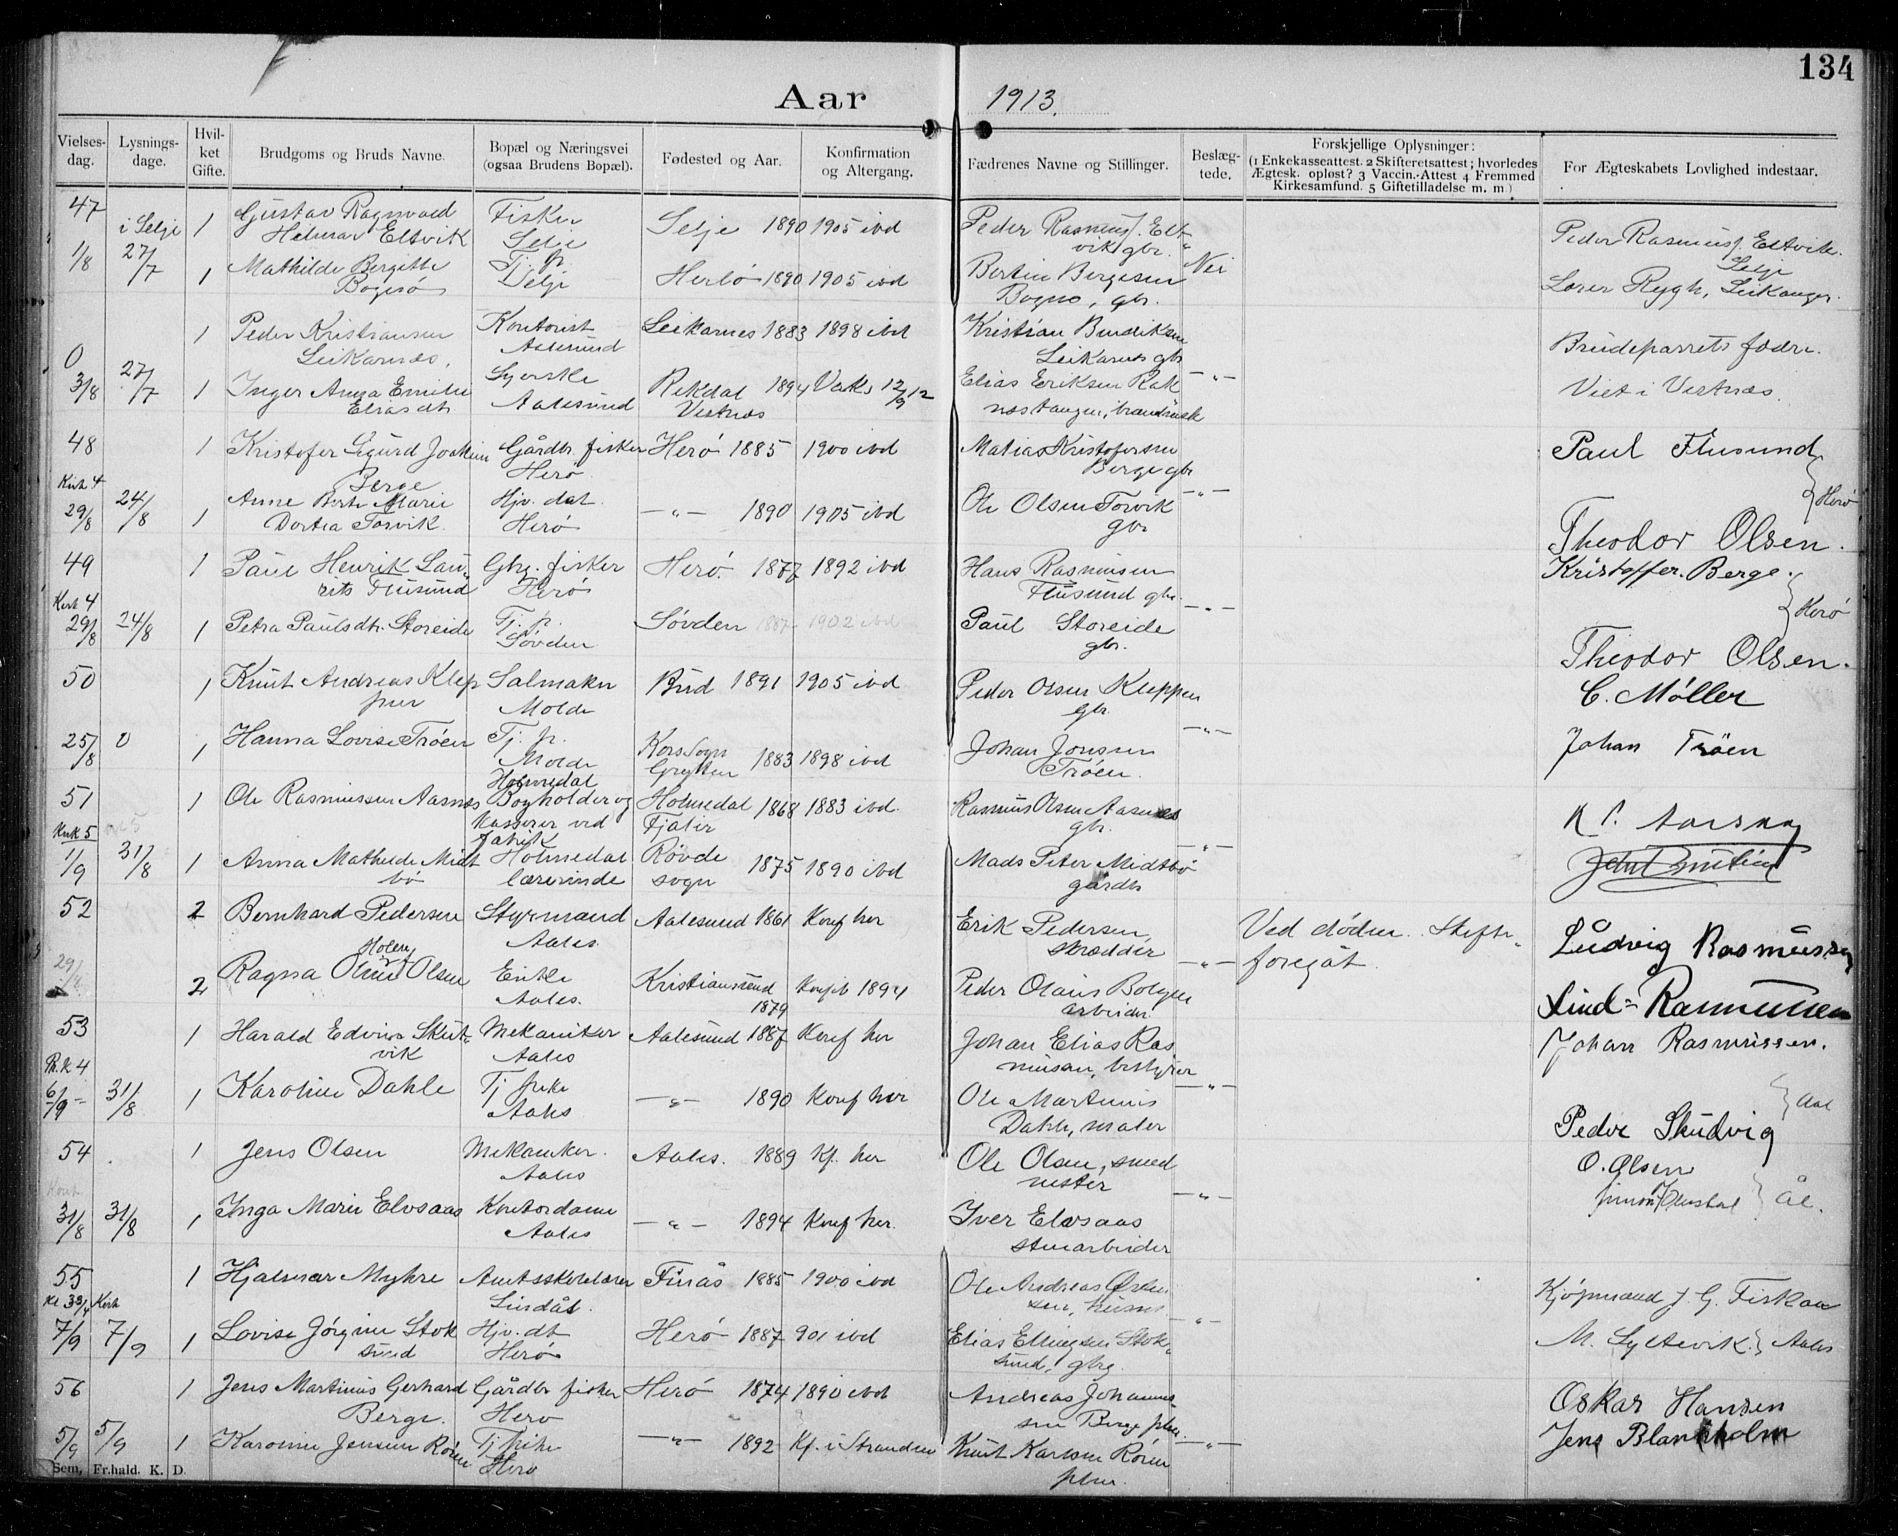 134
Aar 1913.
Vielses-dag. Lysnings-dage. Hvil-ket Gifte. Brudgoms og Bruds Navne. Bopæl og Næringsvei (ogsaa Brudens Bopæl). Fødested og Aar. Konfirmation og Altergang. Fædrenes Navne og Stillinger. Beslæg-tede. Forskjellige Oplysninger: (1 Enkekasseattest. 2 Skifteretsattest; hvorledes Ægtesk. opløst? 3 Vaccin.-Attest 4 Fremmed Kirkesamfund. 5 Giftetilladelse m. m) For Ægteskabets Lovlighed indestaar.
47 i Selje 1 Gustav Ragnvald Fisker Selje 1890 1905 ibd Peder Rasmus. Elt- Peder Rasmus. Eltvik.
Hilmar Eltvik Selje vik gbr. Selje
1/8 27/7 1 Mathilde Bergitte Tj. p. Herlö 1890 1905 ibd Bertin Bergesen Nei Lærer Rygh, Leikanger.
Bogesö Selje gbr.
1 Peder Kristiansen Kontorist Leikarnes 1883 1898 ibd Kristian Bendiksen Brudeparrets fædre.
0 Leikarnæs. Aalesund Leikarnes gbr
3/8 27/7 1 Inger Anna Emilie Syerske Rekdal 1894 12/9 12 Elias Eriksen Rak -"- Viet i Vestnæs.
Eliasdt. Aalesund Vestnæs nestangen,
48 1 Kristofer Sigurd Joakim Gårdbr. fisker Herö 1885 1900 ibd Matias Kristofersen Paul Flusund
Berge Herö. Berge gbr
Kirk 4
29/8 24/8 1 Anne Berte Marie Hjv. dat. -"- 1890 1905 ibd Ole Olsen Torvik -"- Herö
Dortea Torvik. Herö gbr
Theodor Olsen.
49 1 Paul Henrik Lau- Gbrg. fisker Herö. 1877 1892 ibd Hans Rasmusen Kristoffer. Berge.
rits Flusund Herö Flusund gbr.
Kirk 4
29/8 24/8 1 Petra Paulsdtr. Storeide Tj. p. Søvden 1887 1902 ibd Paul Storeide -"- Herö
Søvden gbr.
Theodor Olsen.
50 1 Knut Andreas Klep Salmaker Bud 1891 1905 ibd Peder Olsen Kleppen C. Møller
pen Molde gbr.
25/8 0 1 Hanna Lovise Tröen Tj. p. Kors Sogn 1883 1898 ibd Johan Jonsen -"- Johan Tröen
Molde Grytten Tröen.
51 1 Ole Rasmussen Aasnes Holmedal Bogholder og Holmedal 1868 1883 ibd. Rasmus Olsen Aasnes
kasserer ved Fjaler gbr.
Kirk 5 fabrik
1/9 31/8 1 Anna Mathilde Midt Holmedal Røvde 1875 1890 ibd Mads Peter Midtbö -"-
bö lærerinde sogn gårdbr
52 2 Bernhard Pedersen Styrmand Aalesund 1861 Konf her Erik Pedersen Ved døden. Skifte Ludvig Rasmussen
Aales. skrædder
29/ 2 Ragna Olsen Enke Kristiansund Konfid 1894 Peder Olaus Bolgen -"- foregåt. Lind-Rasmussen
Aales. 1879 arbeider
53 1 Harald Edvin Skut- Mekaniker Aalesund 1887 Konf her Johan Elias Ras Johan Rasmussen.
vik Aales musen, bestyrer
6/9 31/8 1 Karoline Dahle Tj pike -"- 1890 Konf her Ole Martinius -"- Aal
Aales Dahle, maler Peder Skudvig
54 1 Jens Olsen Mekaniker. Aales. 1889 Kf. her Ole Olsen, smed O. Olsen
Aales mester
31/8 31/8 1 Inga Marie Elvsaas Kontordame -"- 1894 Konf her. Iver Elvsaas -"- Ål.
Aales stenarbeider
55 1 Hjalmar Myhre Amtsskolelærer Finås 1885 1900 ibd Ole Andreas Kjøpmand J. G. Fiskaa
Lindås. sen, husm
7/9 7/9 1 Lovise Jörgine Stok Hjv. dt Herö 1887 901 ibd Elias Ellingsen Stok- -"- M. Syltevik. Aales
sund Herö sund, gbrg.
56 1 Jens Martinus Gerhard Gårdbr fisker Herö 1874 1890 ibd Andreas Johanne- Oskar Hansen
Berge. Herö sen Berge plm.
5/9 5/9 1 Karoline Jensen Tj pike -"- 1892 Kf. i Stranden Knut Karlsen -"- Jens Blankholm
Herö plm.
Sem, Fr.hald. K. D.